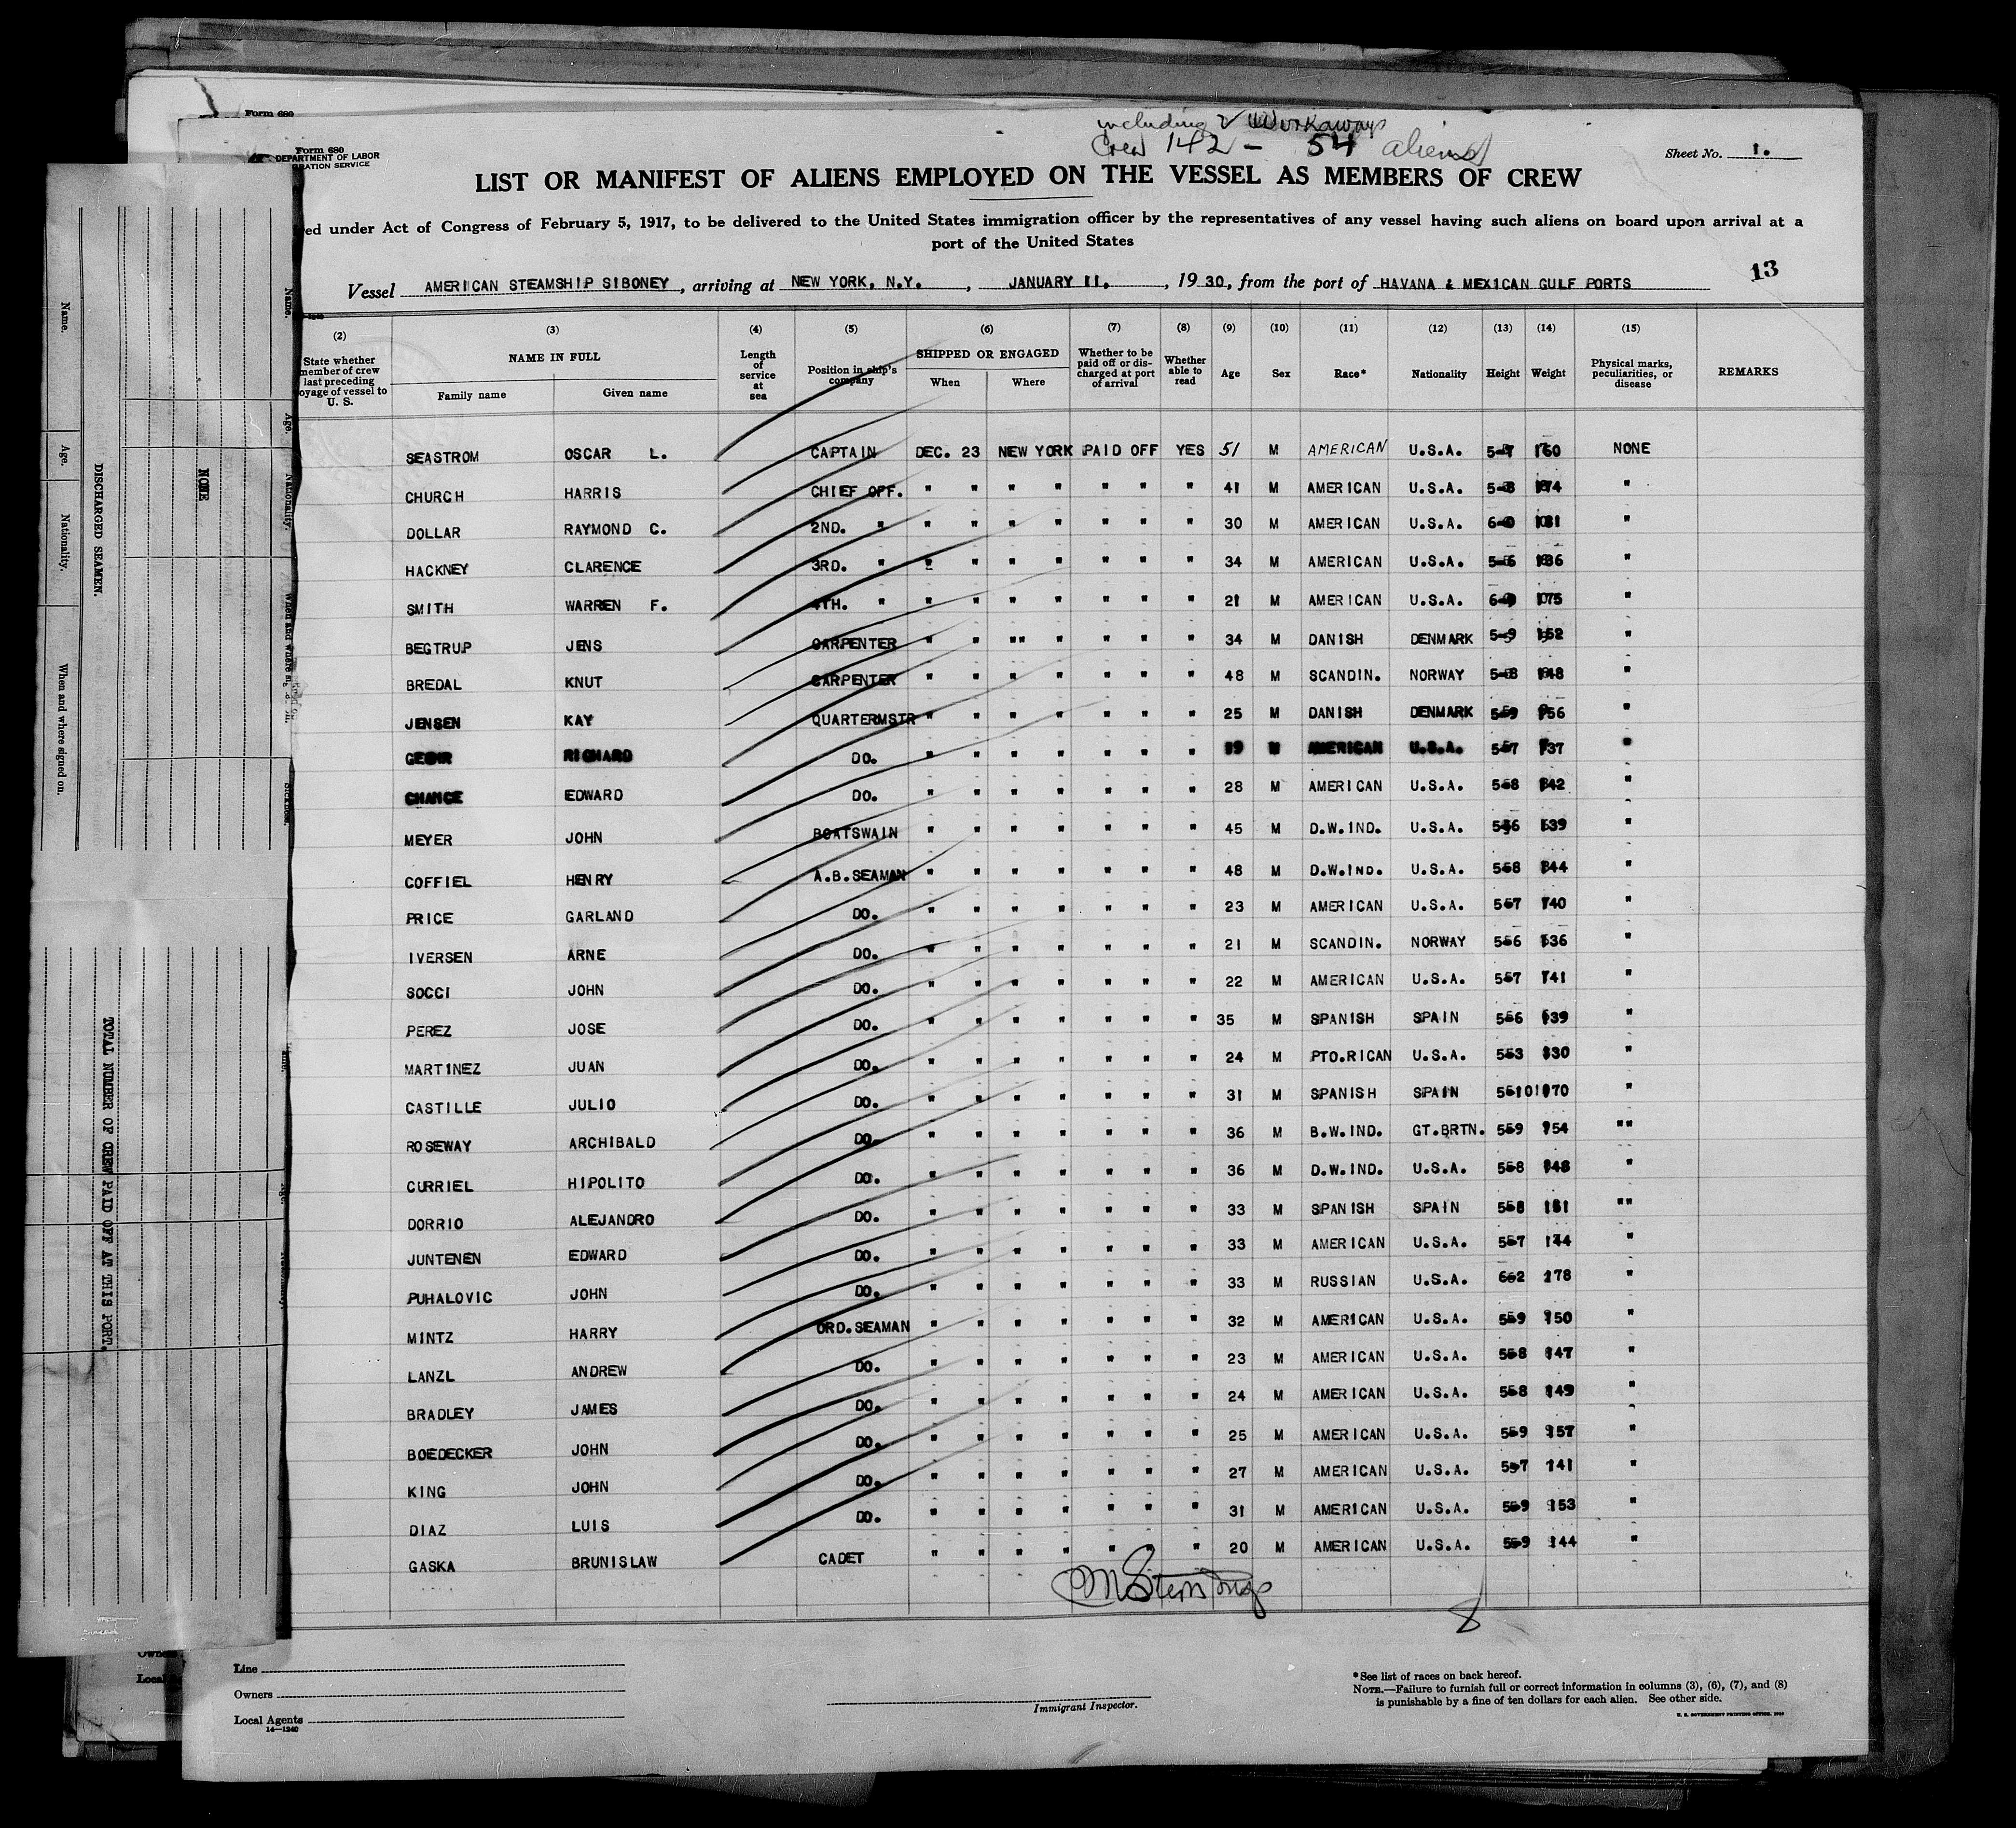 Form 680
Form 680
DEPARTMENT OF LABOR
GRATION SERVICE
including 2 Workaways
Crew 142 - 54 aliens
Sheet No. 1.
LIST OR MANIFEST OF ALIENS EMPLOYED ON THE VESSEL AS MEMBERS OF CREW
ed under Act of Congress of February 5, 1917, to be delivered to the United States immigration officer by the representatives of any vessel having such aliens on board upon arrival at a
port of the United States
13
Vessel AMERICAN STEAMSHIP SIBONEY, arriving at NEW YORK, N.Y., JANUARY 11, 1930, from the port of HAVANA & MEXICAN GULF PORTS
(2) (3) (4) (5) (6) (7) (8) (9) (10) (11) (12) (13) (14) (15)
State whether member of crew last preceding oyage of vessel to U. S.
NAME IN FULL
Family name Given name
Length of service at sea
Position in ship's company
SHIPPED OR ENGAGED
When Where
Whether to be paid off or discharged at port of arrival
Whether able to read
Age Sex Race* Nationality Height Weight
Physical marks, peculiarities, or disease
REMARKS
SEASTROM OSCAR L. CAPTAIN DEC. 23 NEW YORK PAID OFF YES 51 M AMERICAN U.S.A. 5-7 160 NONE
CHURCH HARRIS CHIEF OFF. " " " " " " " 41 M AMERICAN U.S.A. 5-8 174 "
DOLLAR RAYMOND C. 2ND. " " " " " " " " 30 M AMERICAN U.S.A. 6-0 181 "
HACKNEY CLARENCE 3RD. " " " " " " " " 34 M AMERICAN U.S.A. 5-6 136 "
SMITH WARREN F. 4TH. " " " " " " " " 21 M AMERICAN U.S.A. 175 "
BEGTRUP JENS CARPENTER " " "" " " " " 34 M DANISH DENMARK 5-9 152 "
BREDAL KNUT CARPENTER " " " " " " " 48 M SCANDIN. NORWAY 5-8 148 "
JENSEN KAY QUARTERMSTR " " " " " " " 25 M DANISH DENMARK 5-9 156 "
RICHARD DO. " " " " " " " AMERICAN U.S.A. 5-7 137 "
CHANCE EDWARD DO. " " " " " " " 28 M AMERICAN U.S.A. 5-8 142 "
MEYER JOHN BOATSWAIN " " " " " " " 45 M D.W.IND. U.S.A. 5-6 139 "
COFFIEL HENRY A.B.SEAMAN " " " " " " " 48 M D.W.IND. U.S.A. 5-8 144 "
PRICE GARLAND DO. " " " " " " " 23 M AMERICAN U.S.A. 5-7 140 "
IVERSEN ARNE DO. " " " " " " " 21 M SCANDIN. NORWAY 5-6 136 "
SOCCI JOHN DO. " " " " " " " 22 M AMERICAN U.S.A. 5-7 141 "
PEREZ JOSE DO. " " " " " " " 35 M SPANISH SPAIN 5-6 139 "
MARTINEZ JUAN DO. " " " " " " " 24 M PTO.RICAN U.S.A. 5-3 130 "
CASTILLE JULIO DO. " " " " " " " 31 M SPANISH SPAIN 5-10 170 "
ROSEWAY ARCHIBALD DO. " " " " " " " 36 M B.W.IND. GT.BRTN. 5-9 154 ""
CURRIEL HIPOLITO DO. " " " " " " " 36 M D.W.IND. U.S.A. 5-8 148 "
DORRIO ALEJANDRO DO. " " " " " " " 33 M SPANISH SPAIN 5-8 ""
JUNTENEN EDWARD DO. " " " " " " " 33 M AMERICAN U.S.A. 5-7 144 "
PUHALOVIC JOHN DO. " " " " " " " 33 M RUSSIAN U.S.A. 6-2 178 "
MINTZ HARRY ORD.SEAMAN " " " " " " " 32 M AMERICAN U.S.A. 5-9 150 "
LANZL ANDREW DO. " " " " " " " 23 M AMERICAN U.S.A. 5-8 147 "
BRADLEY JAMES DO. " " " " " " " 24 M AMERICAN U.S.A. 5-8 149 "
BOEDECKER JOHN DO. " " " " " " " 25 M AMERICAN U.S.A. 5-9 157 "
KING JOHN DO. " " " " " " " 27 M AMERICAN U.S.A. 5-7 141 "
DIAZ LUIS DO. " " " " " " " 31 M AMERICAN U.S.A. 5-9 153 "
GASKA BRUNISLAW CADET " " " " " " " 20 M AMERICAN U.S.A. 5-9 144 "
8
Line
Owners
Local Agents
14—1240
Immigrant Inspector.
*See list of races on back hereof.
NOTE.—Failure to furnish full or correct information in columns (3), (6), (7), and (8)
is punishable by a fine of ten dollars for each alien. See other side.
U. S. GOVERNMENT PRINTING OFFICE
Name.
Age.
Nationality.
When and where signed on.
DISCHARGED SEAMEN.
NONE
TOTAL NUMBER OF CREW PAID OFF AT THIS PORT.
Name.
Age.
Nationality.